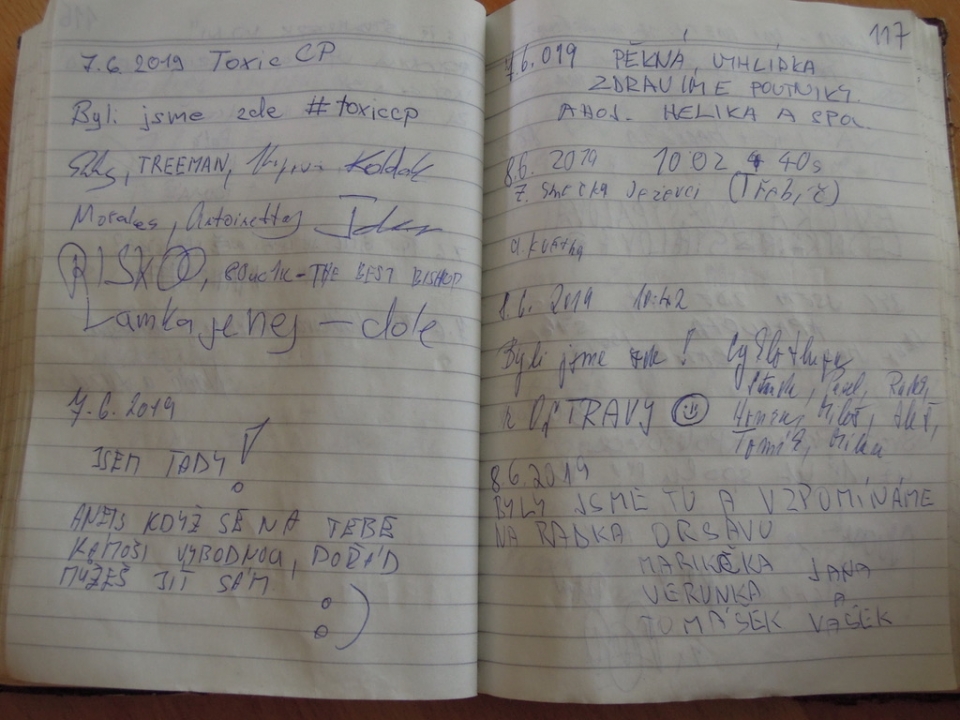 7.6. 2019 Toxic CP
Byli jsme zde #toxiccp
TREEMAN, Koldak
Morales, Antoinettas
RISKOO, - THE BEST BISHOP
Lamka je nej - dole
7.6. 2019
JSEM TADY!
ANEB KDYŽ SE NA TEBE
KÁMOŠI VYBODNOU, POŘÁD
MŮŽEŠ JÍT SÁM
:)
117
7.6.019 PĚKNÁ, VYHLÍDKA
ZDRAVÍME POUTNÍKY.
AHOJ. HELIKA A SPOL.
8.6. 2019 10:02 40s
7. smečka Ježevci (Třebíč)
8.6. 2019 10:42
Byli jsme zde!
z OSTRAVY ☺
Pavel, Radka,
Miloš,
8.6.2019
BYLY JSME TU A VZPOMÍNÁME
NA RADKA ORSAVU
MARUŠKA JANA
VERUNKA A
TOMÁŠEK VAŠEK